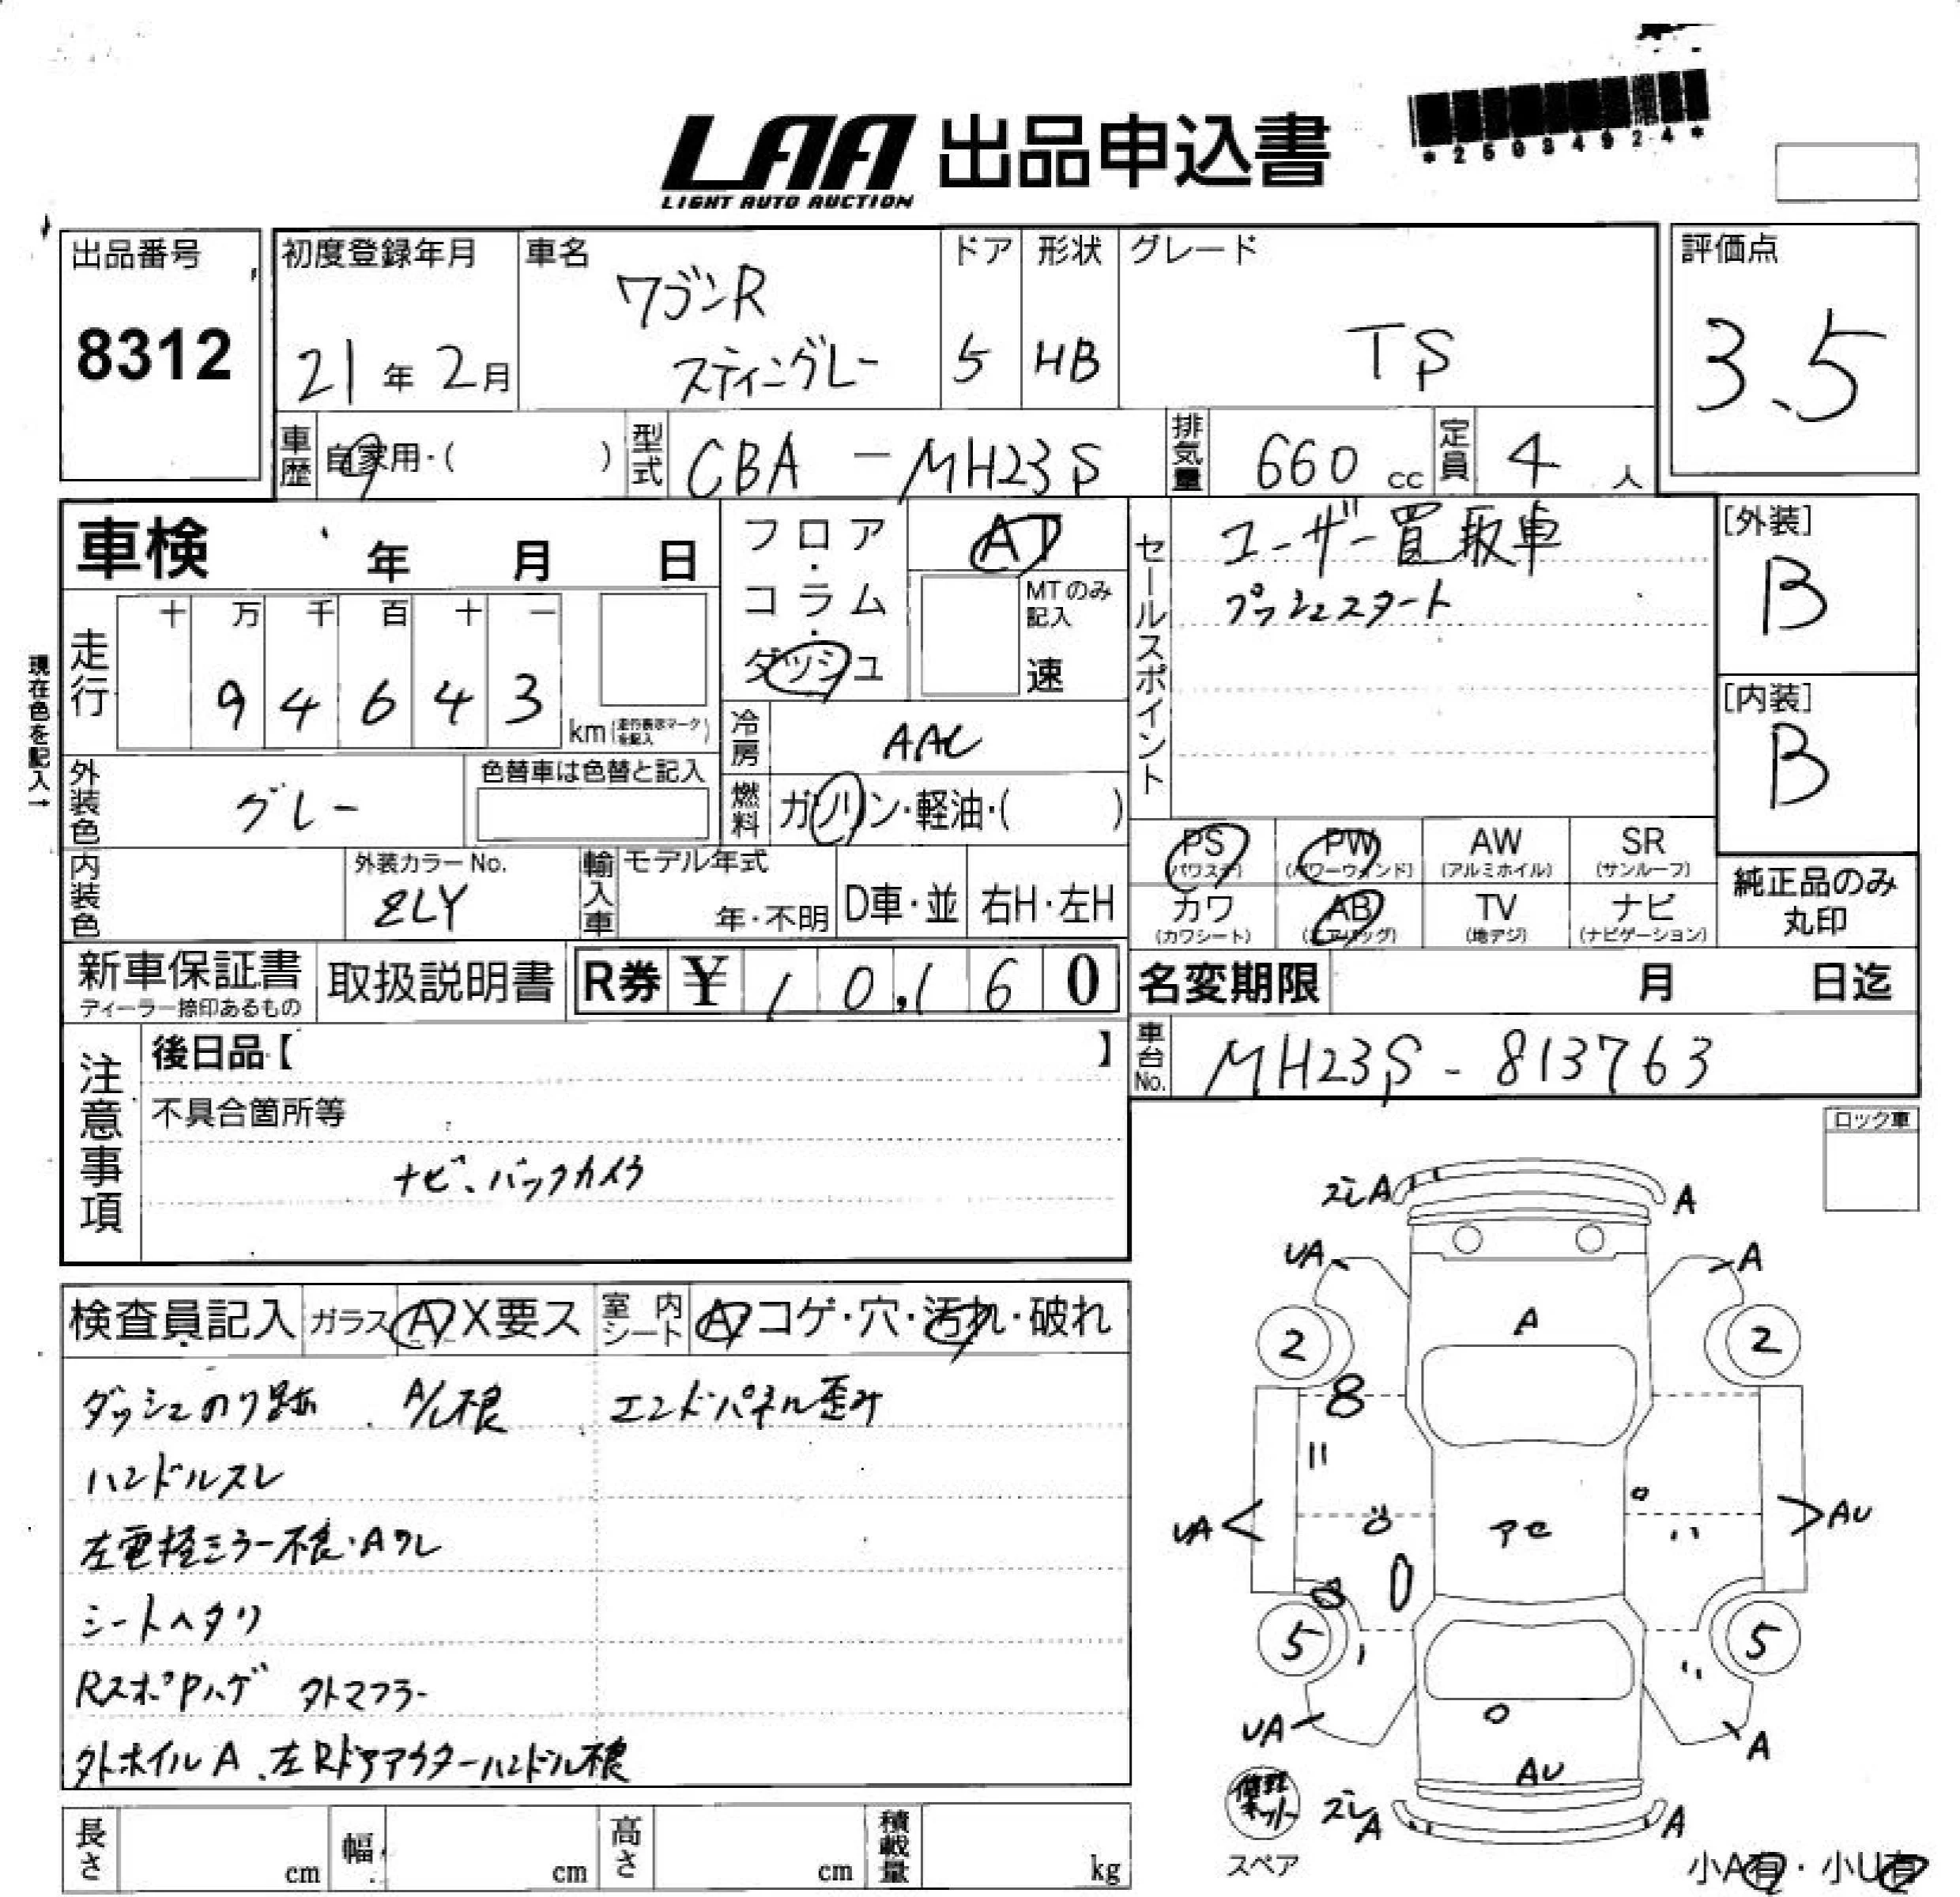 LAA 出品申込書
LIGHT AUTO AUCTION
*25034924*
出品番号
8312
初度登録年月
21年 2月
車名
ワゴンR
スティングレー
ドア
5
形状
HB
グレード
TS
評価点
3.5
車歴 自家用・( )
型式 CBA - MH23S
排気量 660 cc
定員 4 人
車検 年 月 日
フロア・コラム・ダッシュ
AT
MTのみ記入
速
セールスポイント
ユーザー買取車
プッシュスタート
[外装]
B
[内装]
B
現在色を記入→
走行
十 万 千 百 十 一
9 4 6 4 3
km(走行表示マークを記入)
冷房 AAC
外装色 グレー
色替車は色替と記入
燃料 ガソリン・軽油・( )
内装色
外装カラーNo.
ZLY
輸入車
モデル年式
年・不明
D車・並
右H・左H
PS (パワステ)
PW (パワーウインド)
AW (アルミホイル)
SR (サンルーフ)
カワ (カワシート)
AB (エアバッグ)
TV (地デジ)
ナビ (ナビゲーション)
純正品のみ
丸印
新車保証書
ディーラー捺印あるもの
取扱説明書
R券 ¥ 10,160
名変期限 月 日迄
車台No. MH23S - 813763
注意事項
後日品【 】
不具合箇所等
ナビ、バックカメラ
ロック車
検査員記入
ガラス A X要ス
室内シート A コゲ・穴・汚れ・破れ
ダッシュのり跡 . A/C不良 エンドパネル歪み
ハンドルスレ
左電格ミラー不良・Aワレ
シートヘタリ
RスポPハゲ 外マフラー
外ホイルA、左Rドアアウターハンドル不良
ズレA
A
UA
A
A
2
2
8
UA
AU
アセ
5
5
UA
A
AU
ズレA
A
修理キット
スペア
小A有・小U有
長さ cm
幅 cm
高さ cm
積載量 kg